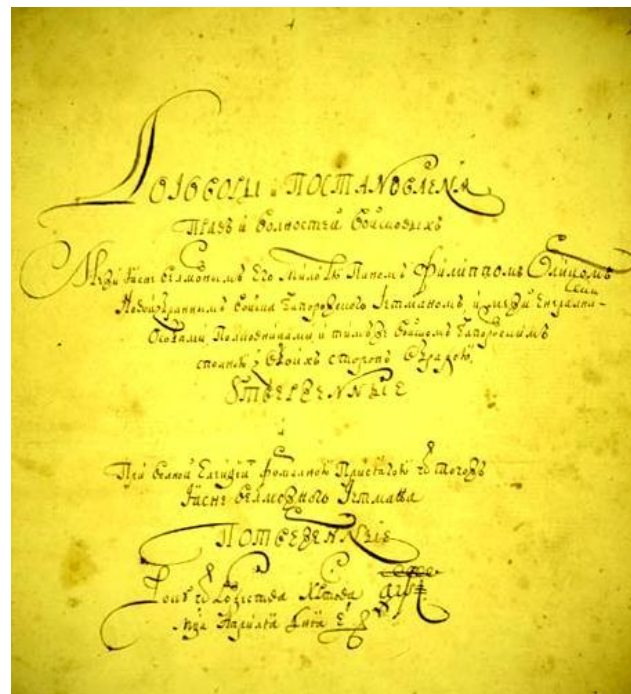 Договоры и ПОСТАНОВЛЕНѦ
Правъ и волностей войсковыхъ
Межи Ясне велможнымъ Его Мил: Паномъ Филиппомъ Орликомъ
Новоизбраннымъ войска Запорожского Гетманомъ, и межи Енералними
Особами, Полковниками, и тимъ же войскомъ Запорожскимъ
з обоихъ сторонъ обрадою,
УТВЕРЖЕННЫЕ
и
При волной Елекцїи формалною Присягою ѿ тогожъ
Ясне велможного Гетмана
ПОТВЕРЖЕННЫЕ
Року ѿ Рождества Христова аѱі
Мца Априля дня є҃